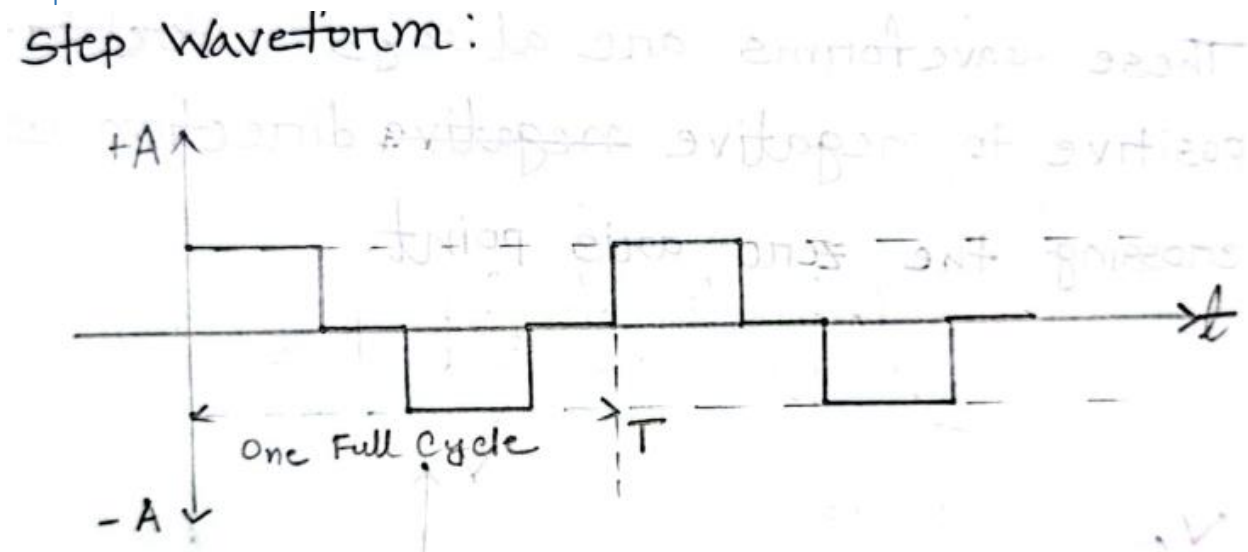 Step Waveform:
+A
t
One Full Cycle
T
- A